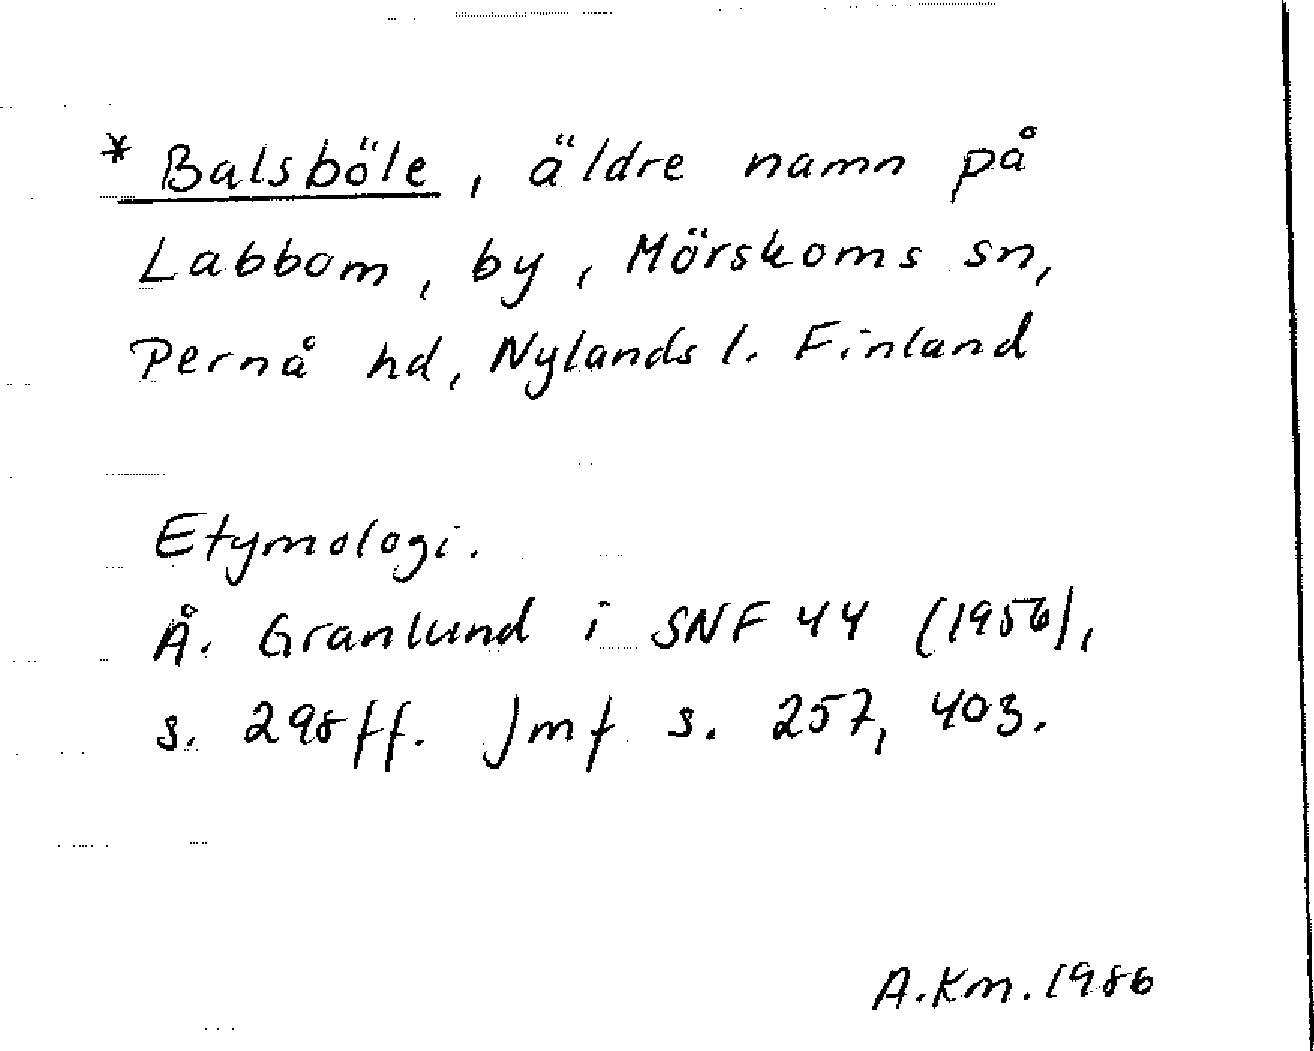 * Balsböle, äldre namn på
Labbom, by, Mörskoms sn,
Pernå hd, Nylands l. Finland
Etymologi.
Å. Granlund i SNF 44 (1956),
s. 298 ff. Jmf s. 257, 403.
A.Km. 1986